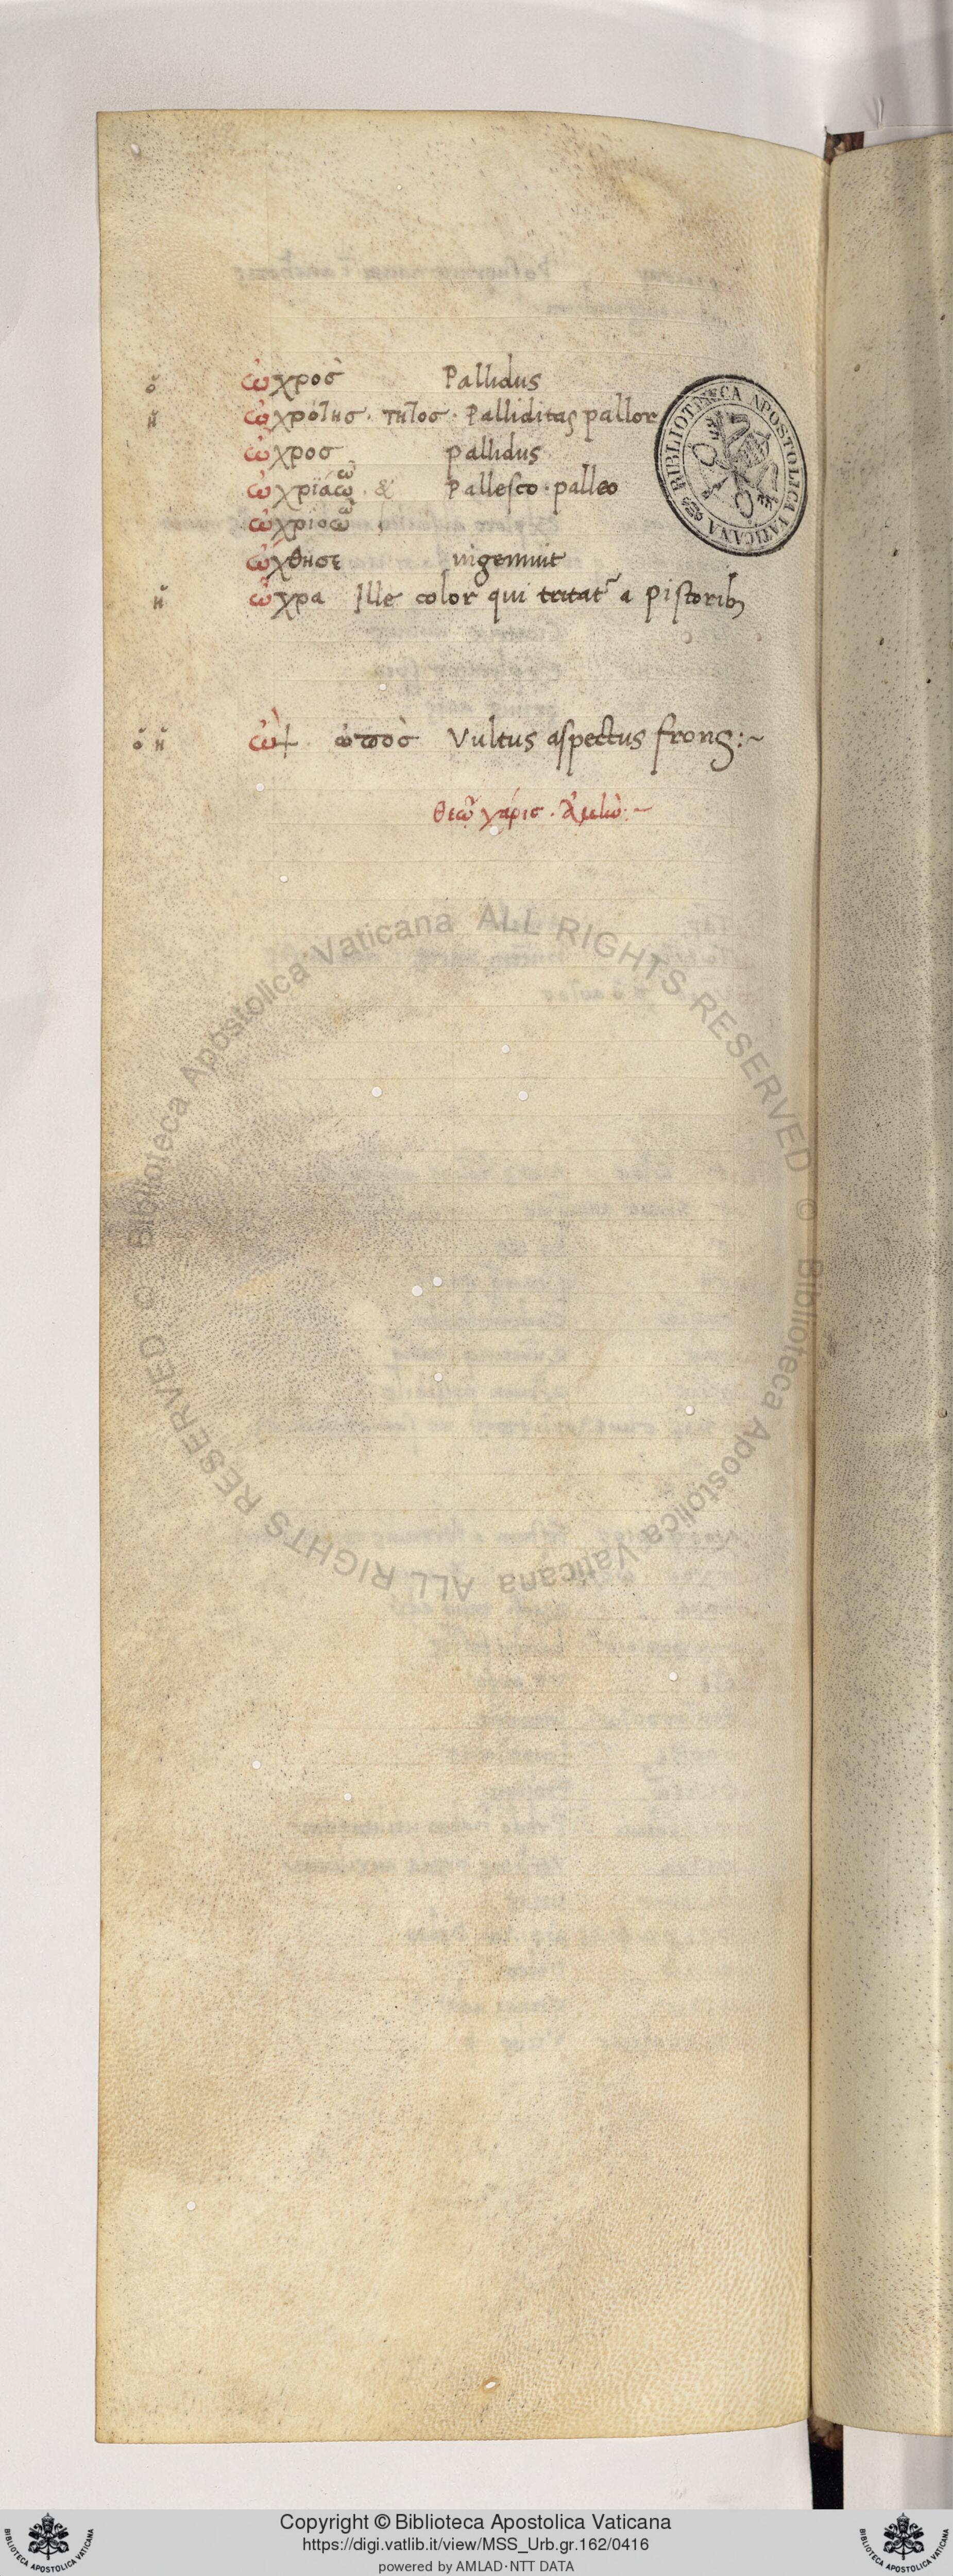 ὁ ὠχροσ Pallidus
ἡ ὠχρότησ · τητοσ · Palliditas pallor
ὠχροσ pallidus
ὠχριάω ῶ · & Pallesco · palleo
ὠχριόω ῶ
ὤχθησε ingemuit
ἡ ὤχρα Ille color qui tritat᷑ a pistorib
ὁ ἡ ὢψ · ὠποσ Vultus aspectus frons :~
θεῶ χάρισ · ἀμὼ :~
BIBLIOTHECA APOSTOLICA VATICANA
© Biblioteca Apostolica Vaticana ALL RIGHTS RESERVED
© Biblioteca Apostolica Vaticana ALL RIGHTS RESERVED
Copyright © Biblioteca Apostolica Vaticana
https://digi.vatlib.it/view/MSS_Urb.gr.162/0416
powered by AMLAD·NTT DATA
BIBLIOTECA APOSTOLICA VATICANA
BIBLIOTECA APOSTOLICA VATICANA